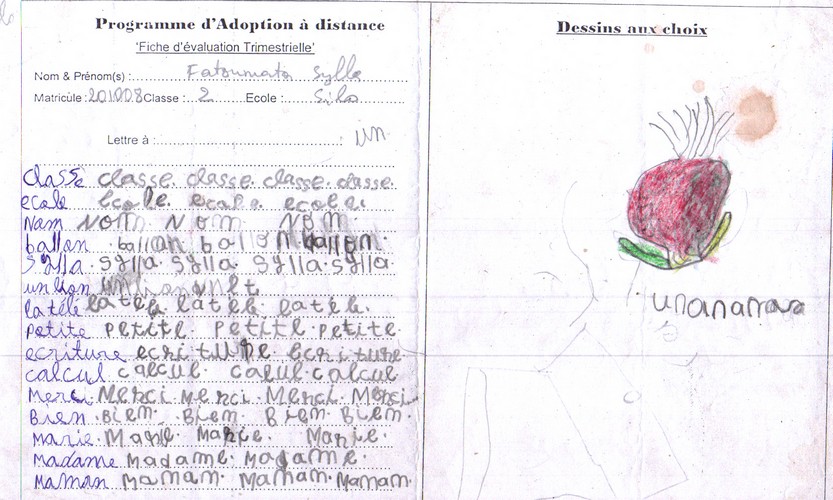 Programme d'Adoption à distance
'Fiche d'évaluation Trimestrielle'
Nom & Prénom(s) : Fatoumata Sylla
Matricule : 201008 Classe : 2 Ecole : Silo
Lettre à : un
Classe classe. classe. classe. classe.
ecole ecole. ecole. ecole.
Nam NOM NOM. NOM.
ballon ballon ballon ballon.
Sylla. sylla. sylla. sylla. sylla.
un lion
la télé la télé la télé. la télé.
petite petite. petite. petite.
ecriture ecriture ecriture
calcul calcul. calul. calcul
Merci. Merci merci. Merci. Merci
Bien. Biem. Biem. Biem. Biem.
Marie. Marie. Marie. Marie.
Madame madame. Madame.
Maman Mamam. Mamam. Mamam.
Dessins aux choix
unananas